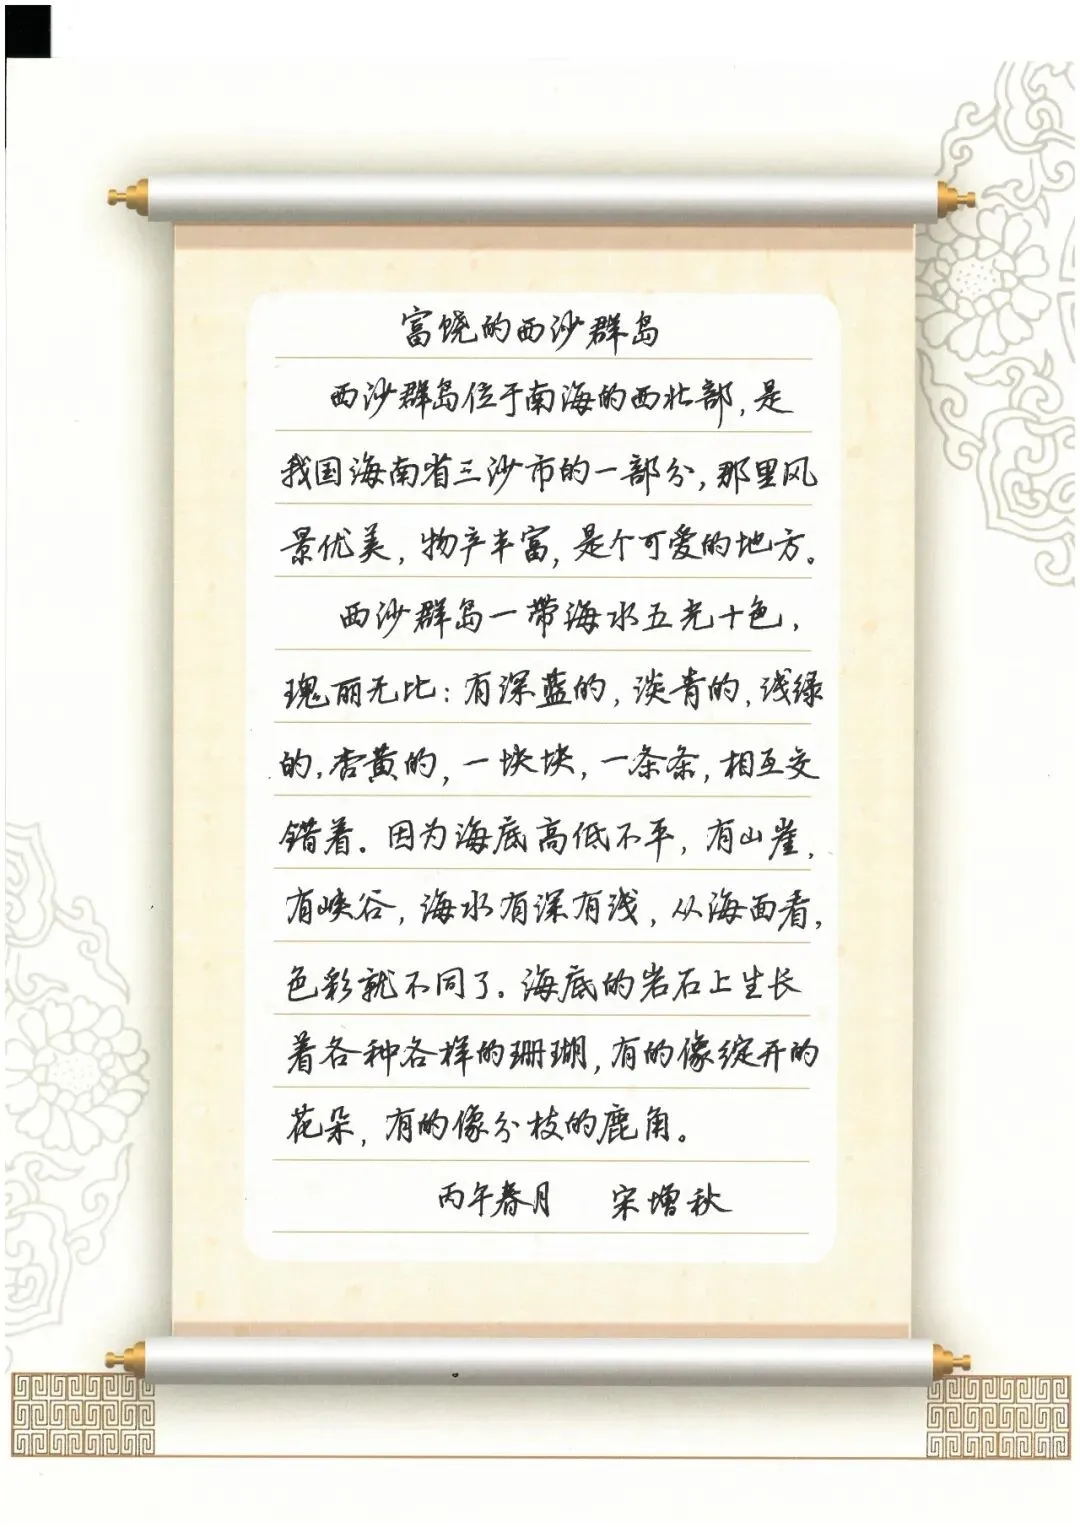 富饶的西沙群岛
西沙群岛位于南海的西北部，是
我国海南省三沙市的一部分，那里风
景优美，物产丰富，是个可爱的地方。
西沙群岛一带海水五光十色，
瑰丽无比：有深蓝的，淡青的，浅绿
的，杏黄的，一块块，一条条，相互交
错着。因为海底高低不平，有山崖，
有峡谷，海水有深有浅，从海面看，
色彩就不同了。海底的岩石上生长
着各种各样的珊瑚，有的像绽开的
花朵，有的像分枝的鹿角。
丙午春月 宋增秋